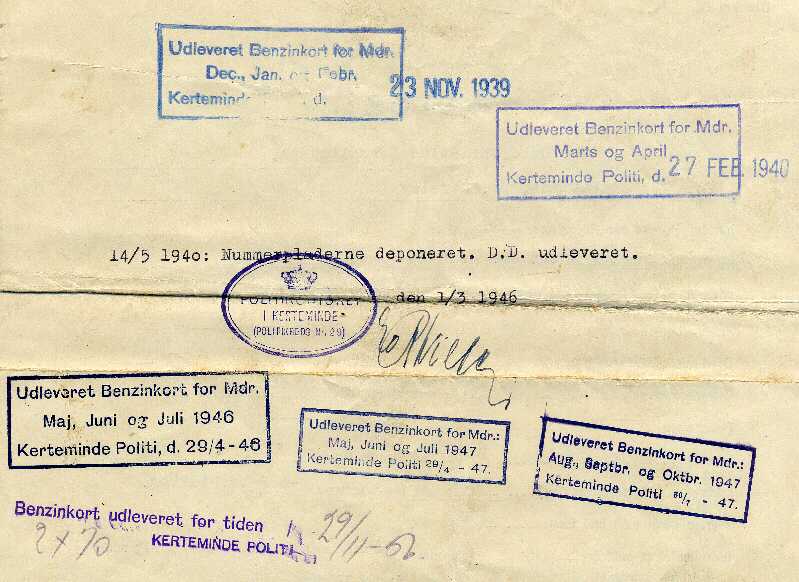 Udleveret Benzinkort for Mdr.
Dec., Jan. og Febr.
Kerteminde d.
23 NOV. 1939
Udleveret Benzinkort for Mdr.
Marts og April
Kerteminde Politi, d. 27 FEB. 1940
14/5 194o: Nummerpladerne deponeret. D.D. udleveret.
den 1/3 1946
POLITIKONTORET
I KERTEMINDE
(POLITIKREDS Nr. 29)
Udleveret Benzinkort for Mdr.
Maj, Juni og Juli 1946
Kerteminde Politi, d. 29/4-46
Udleveret Benzinkort for Mdr.:
Maj, Juni og Juli 1947
Kerteminde Politi 29/4 - 47.
Udleveret Benzinkort for Mdr.:
Aug., Septbr. og Oktbr. 1947
Kerteminde Politi 30/7 - 47.
Benzinkort udleveret for tiden
KERTEMINDE POLITI
2 x 70